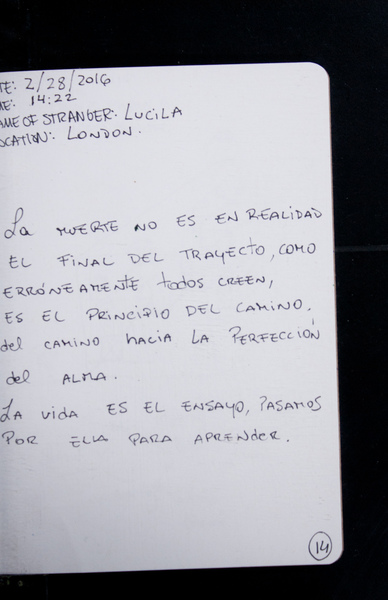 TE: 2/28/2016
ME: 14:22
AME OF STRANGER: LUCILA
OCATION: LONDON.
La MUERTE NO ES EN REALIDAD
EL FINAL DEL TRAYECTO, COMO
ERRÓNEAMENTE todos CREEN,
ES EL PRINCIPIO DEL CAMINO.
del CAMINO hacia LA PERFECCIÓN
del ALMA.
LA VIDA ES EL ENSAYO, PASAMOS
POR ELLA PARA APRENDER.
14